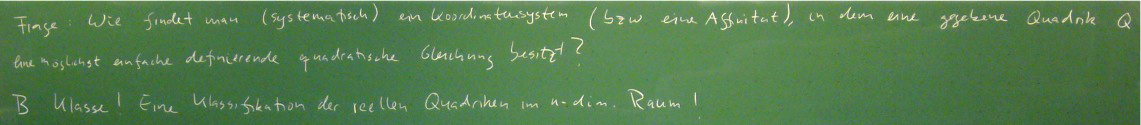 Frage: Wie findet man (systematisch) ein Koordinatensystem (bzw. eine Affinität), in dem eine gegebene Quadrik Q
eine möglichst einfache definierende quadratische Gleichung besitzt?
B Klasse! Eine Klassifikation der reellen Quadriken im n-dim. Raum!